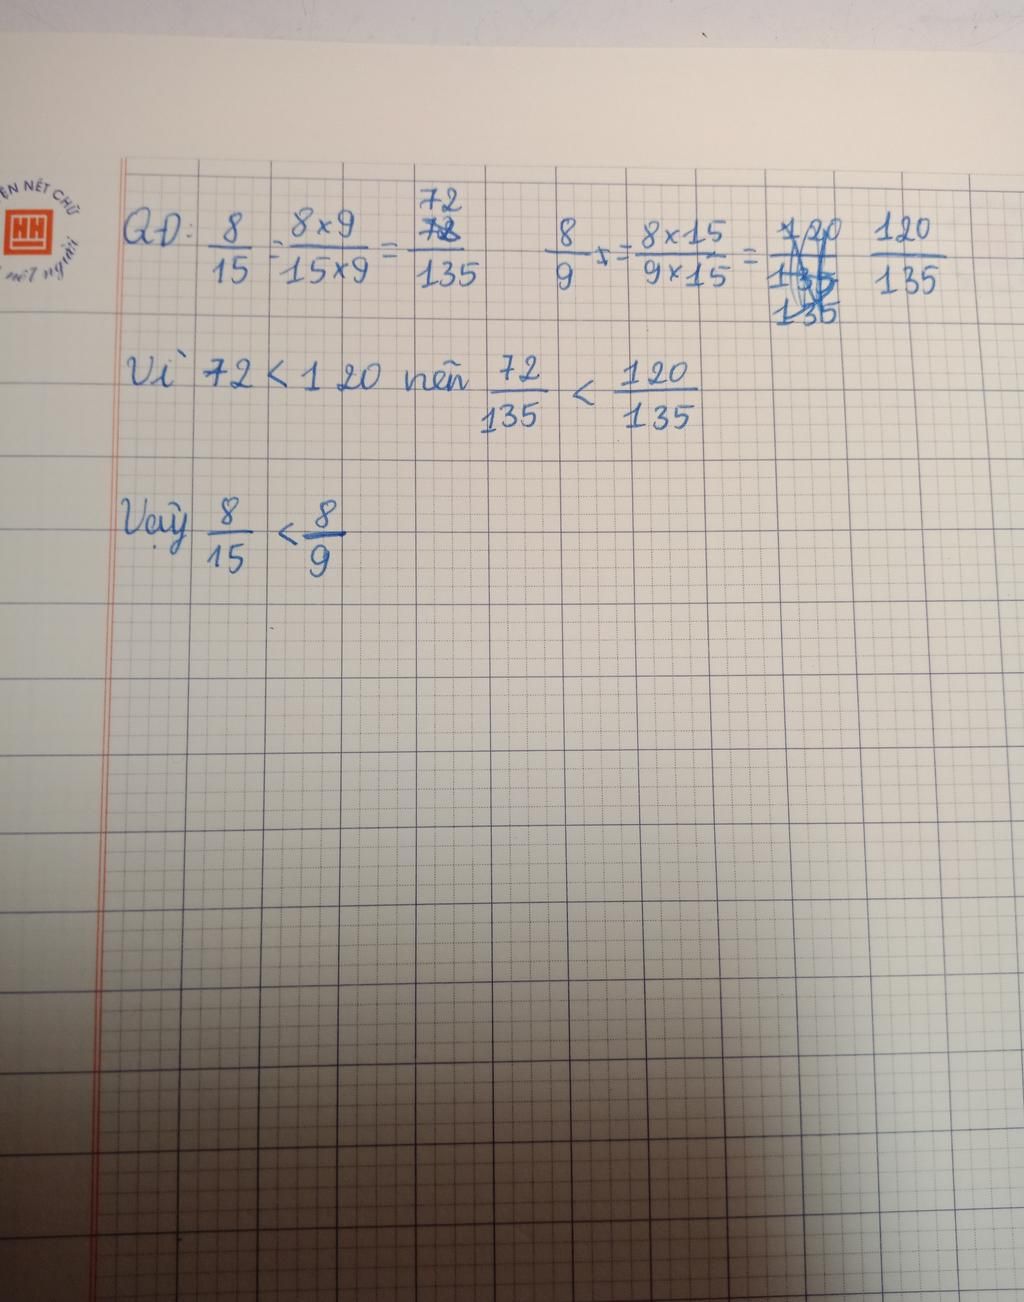 ÈN NÉT CHỮ
HH
nết người
QĐ: 8/15 = 8×9/15×9 = 72/135 8/9 = 8×15/9×15 = 120/135
Vì 72 < 120 nên 72/135 < 120/135
Vậy 8/15 < 8/9